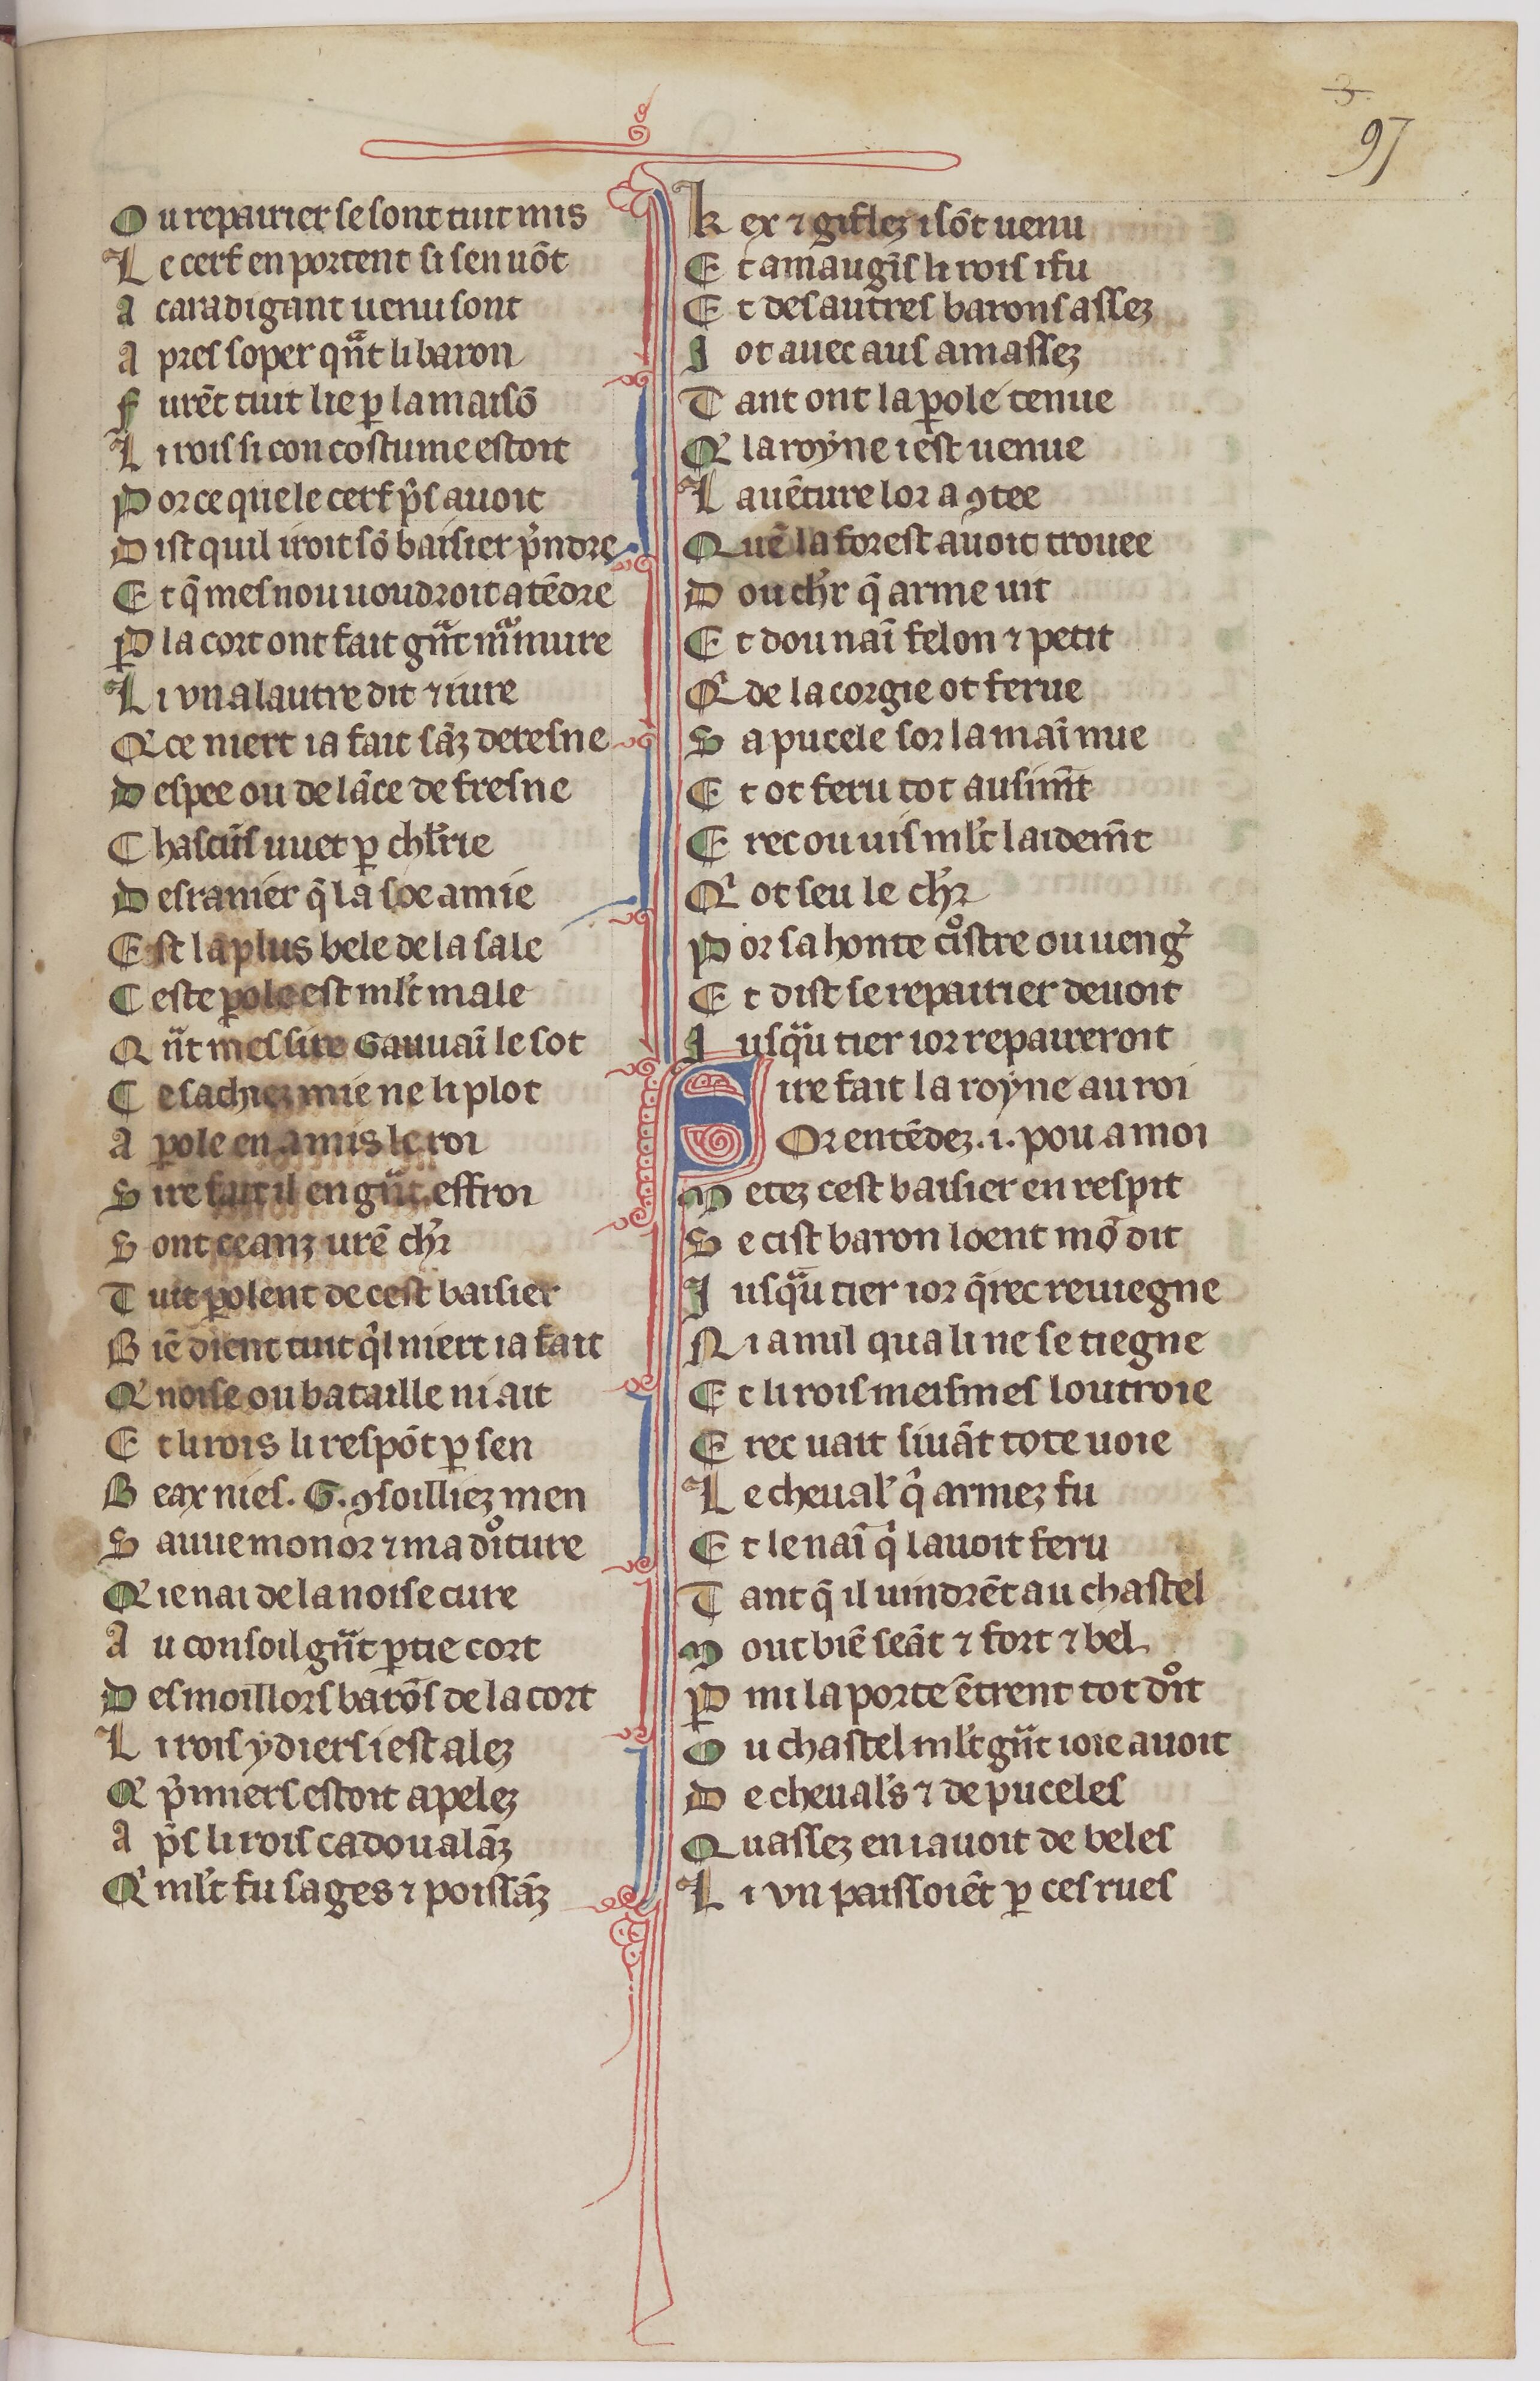 3.
97
Ou repairier se sont tuit mis
Le cerf en portent si sen uōt
A caradigant uenu sont
Apres soper qᷓnt li baron
Furēt tuit lie ꝑ la maisō
Li rois si con costume estoit
Por ce que le cerf p̃s auoit
Dist quil iroit sō baisier p̃ndre
Et q̃ mes nou uoudroit atēdre
Ꝑ la cort ont fait gᷓnt mᷓmure
Li vn a lautre dit ⁊ iure
Qͥ ce niert ia fait sāz deresne
Despee ou de lāce de fresne
Chascūs uuet ꝑ chl̄rie
Desranier q̃ la soe amie
Est la plus bele de la sale
Ceste ꝑole est ml̄t male
Qᷓnt messire Gauuaī le sot
Ce sachiez mie ne li plot
A ꝑole en a mis le roi
Sire fait il en gᷓnt effroi
Sont ceanz urē chl̄r
Tuit ꝑolent de cest baisier
Biē dient tuit qͥl niert ia fait
Qͥ noise ou bataille ni ait
Et li rois li respōt ꝑ sen
Beax nies .G. ꝯsoilliez men
Sauue monor ⁊ ma dͦiture
Qͥ ie nai de la noise cure
Au consoil gᷓnt ꝑtie cort
Des moillors barōs de la cort
Li rois ydiers i est alez
Qͥ p̃miers estoit apelez
A p̃s li rois cadoualāz
Qͥ ml̄t fu sages ⁊ poissāz
Kex ⁊ giflez i sōt uenu
Et amaugīs li rois i fu
Et des autres barons assez
I ot auec aus amassez
Tant ont la ꝑole tenue
Qͥ la royne i est uenue
Lauēture lor a ꝯtee
Quē la forest auoit trouee
Dou chl̄r q̃ arme uit
Et dou naī felon ⁊ petit
Qͥ de la corgie ot ferue
Sa pucele sor la maī nue
Et ot feru tot ausimēt
Erec ou uis ml̄t laidemēt
Qͥ ot seu le chl̄r
Por sa honte cͦstre ou uengͥ
Et dist se repairier deuoit
Iusqᷓu tier ior repaireroit
Sire fait la royne au roi
Or entēdez .i. pou a moi
Metez cest baisier en respit
Se cist baron loent mō dit
Iusqᷓu tier ior q̃rec reuiegne
Ni a nul qua li ne se tiegne
Et li rois meismes loutroie
Erec uait siuāt tote uoie
Le cheual' qͥ armez fu
Et le naī qͥ lauoit feru
Tant q̃ il uindrēt au chastel
Mout biē seāt ⁊ fort ⁊ bel
Ꝑmi la porte ētrent tot dͦit
Ou chastel ml̄t gᷓnt ioie auoit
De cheual's ⁊ de puceles
Quassez en i auoit de beles
Li vn paissoiēt ꝑ ces rues